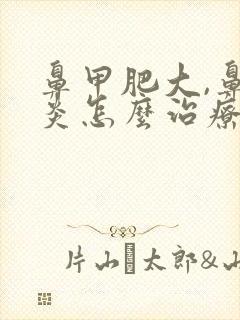 鼻甲肥大,鼻
炎怎麼治療
片山太郎&山